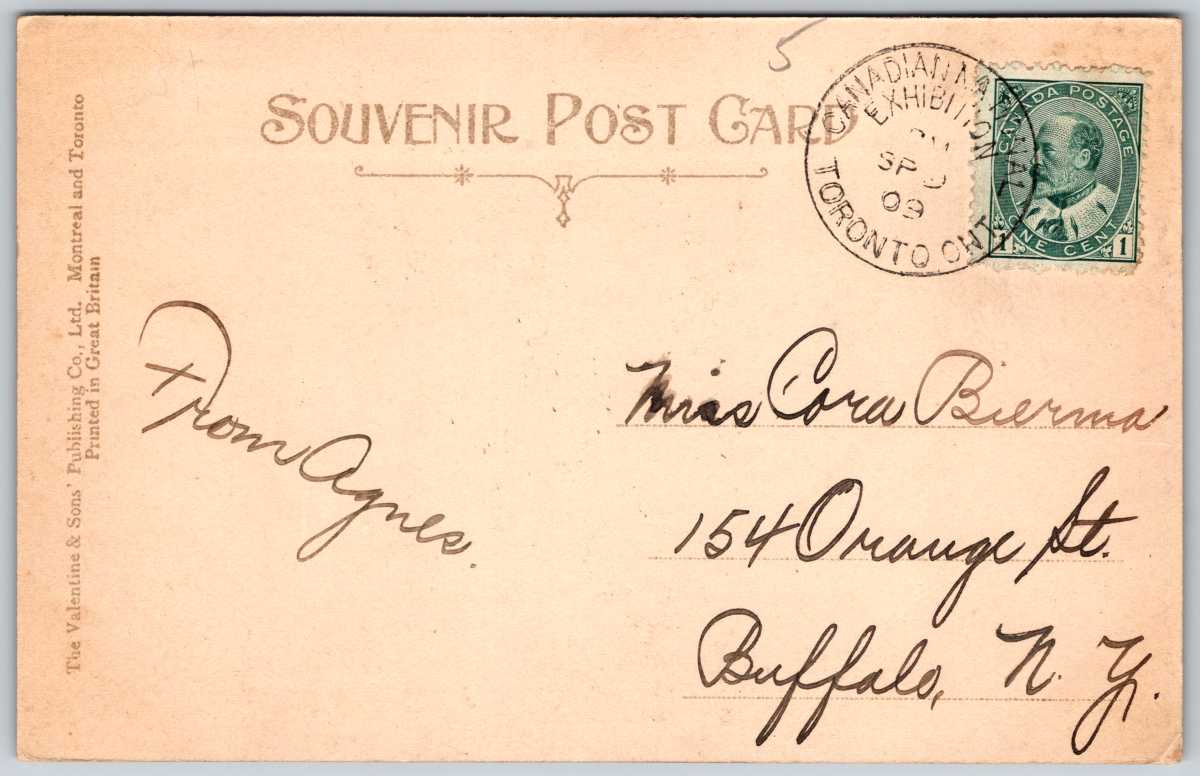 5
SOUVENIR POST CARD
CANADIAN NATIONAL
EXHIBITION
PM
SP 9
09
TORONTO ONT.
CANADA POSTAGE
1 ONE CENT 1
The Valentine & Sons' Publishing Co., Ltd. Montreal and Toronto
Printed in Great Britain
From Agnes.
Miss Cora Bierma
154 Orange St.
Buffalo, N. Y.